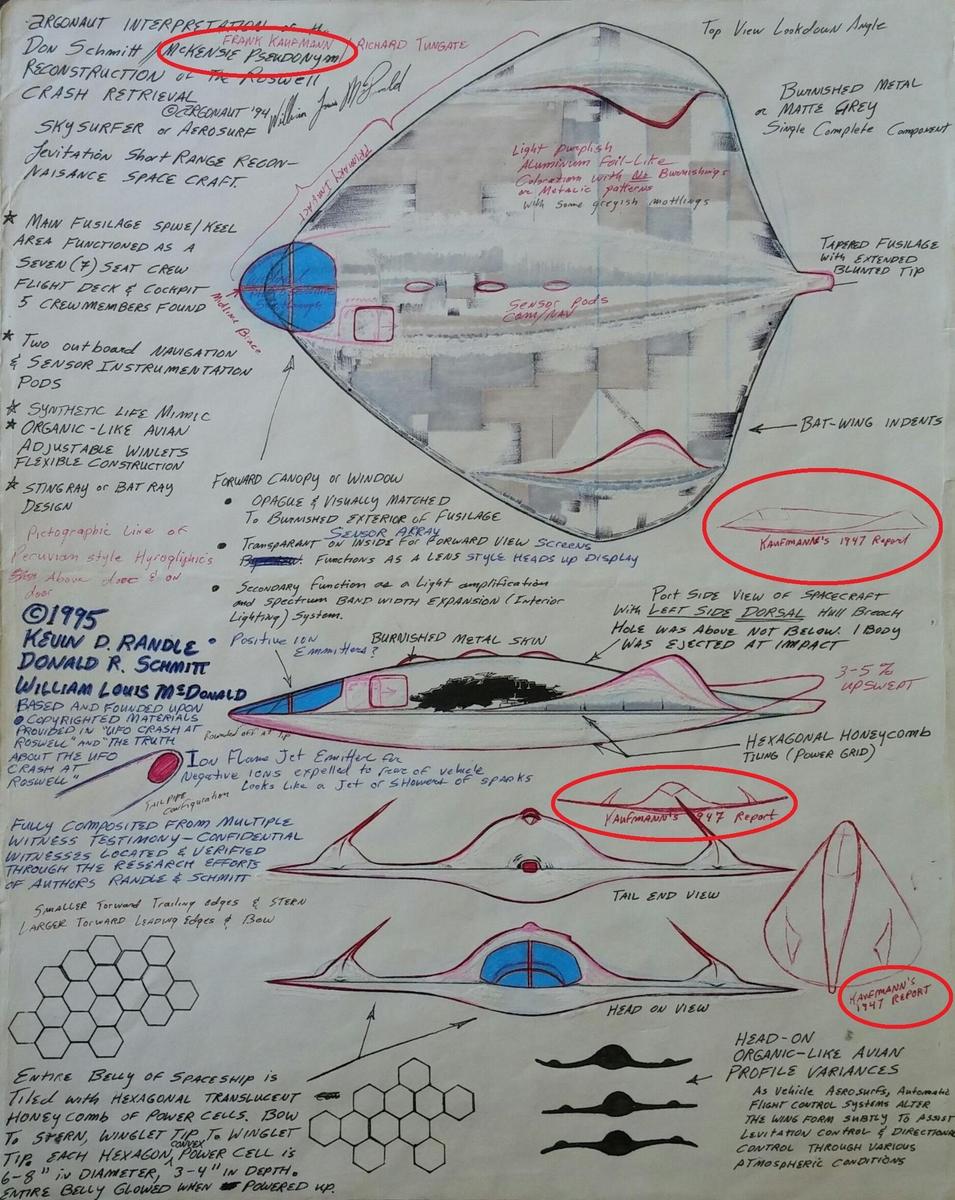 ARGONAUT INTERPRETATION of the
FRANK KAUFMANN
DON SCHMITT / MCKENSIE PSEUDONYM / RICHARD TUNGATE
RECONSTRUCTION of THE ROSWELL
CRASH RETRIEVAL
© ARGONAUT '94 William Louis McDonald
SKYSURFER or AEROSURF
LEVITATION SHORT RANGE RECON-
NAISANCE SPACE CRAFT.
Top View Lookdown Angle
BURNISHED METAL
or MATTE GREY
Single Complete Component
PRIMARY IMPACT
Light purplish
Aluminum Foil-Like
Coloration with No Burnishings
or Metalic patterns
with some greyish mottlings
★ MAIN FUSILAGE SPINE/KEEL
AREA FUNCTIONED AS A
SEVEN (7) SEAT CREW
FLIGHT DECK & COCKPIT
5 CREWMEMBERS FOUND
Midline Brace
SENSOR PODS
COM/NAV
TAPERED FUSILAGE
with EXTENDED
BLUNTED TIP
★ TWO outBOARD NAVIGATION
& SENSOR INSTRUMENTATION
PODS
★ SYNTHETIC LIFE MIMIC
★ ORGANIC-LIKE AVIAN
ADJUSTABLE WINLETS
FLEXIBLE CONSTRUCTION
★ STINGRAY or BAT RAY
DESIGN
BAT-WING INDENTS
Pictographic Line of
Peruvian style Hyrogliphics
Above door & on
door
FORWARD CANOPY or WINDOW
• OPAQUE & VISUALLY MATCHED
TO BURNISHED EXTERIOR of FUSILAGE
SENSOR ARRAY
• TRANSPARANT ON INSIDE FOR FORWARD VIEW SCREENS
FUNCTIONS AS A LENS STYLE HEADS up DISPLAY
• SECONDARY FUNCTION as a Light amplification
and SPECTRUM BAND WIDTH EXPANSION (INTERIOR
LIGHTING) SYSTEM.
KAUFMANN'S 1947 Report
PORT SIDE VIEW OF SPACECRAFT
With LEFT SIDE DORSAL Hull Breach
HOLE WAS ABOVE NOT BELOW. 1 BODY
WAS EJECTED AT IMPACT
© 1995
KEVIN D. RANDLE
DONALD R. SCHMITT
WILLIAM LOUIS MCDONALD
BASED AND FOUNDED UPON
• COPYRIGHTED MATERIALS
PROVIDED IN "UFO CRASH AT
ROSWELL" AND "THE TRUTH
ABOUT THE UFO
CRASH AT
ROSWELL"
• Positive ION
Emmitters?
BURNISHED METAL SKIN
3-5%
UPSWEPT
Rounded off at Tip
HEXAGONAL HONEYCOMB
TILING (POWER GRID)
ION Flame Jet Emitter for
Negative IONS expelled to rear of vehicle
Looks Like a Jet or SHOWER of SPARKS
TAILPIPE
configuration
KAUFMANN'S 1947 Report
FULLY COMPOSITED FROM MULTIPLE
WITNESS TESTIMONY - CONFIDENTIAL
WITNESSES LOCATED & VERIFIED
THROUGH THE RESEARCH EFFORTS
OF AUTHORS RANDLE & SCHMITT
TAIL END VIEW
SMALLER Forward Trailing edges & STERN
LARGER Forward LEADING EDGES & BOW
HEAD ON VIEW
KAUFMANN'S
1947 REPORT
HEAD-ON
ORGANIC-LIKE AVIAN
PROFILE VARIANCES
AS VEHICLE AEROSURFS, AUTOMATIC
FLIGHT CONTROL SYSTEMS ALTER
THE WING FORM SUBTLY TO ASSIST
LEVITATION CONTROL & DIRECTIONAL
CONTROL THROUGH VARIOUS
ATMOSPHERIC CONDITIONS
ENTIRE BELLY OF SPACESHIP is
TILED with HEXAGONAL TRANSLUCENT
HONEYCOMB OF POWER CELLS. BOW
TO STERN, WINGLET TIP TO WINGLET
CONVEX
TIP, EACH HEXAGON, POWER CELL is
6-8" in DIAMETER, 3-4" in DEPTH.
ENTIRE BELLY GLOWED WHEN POWERED UP.